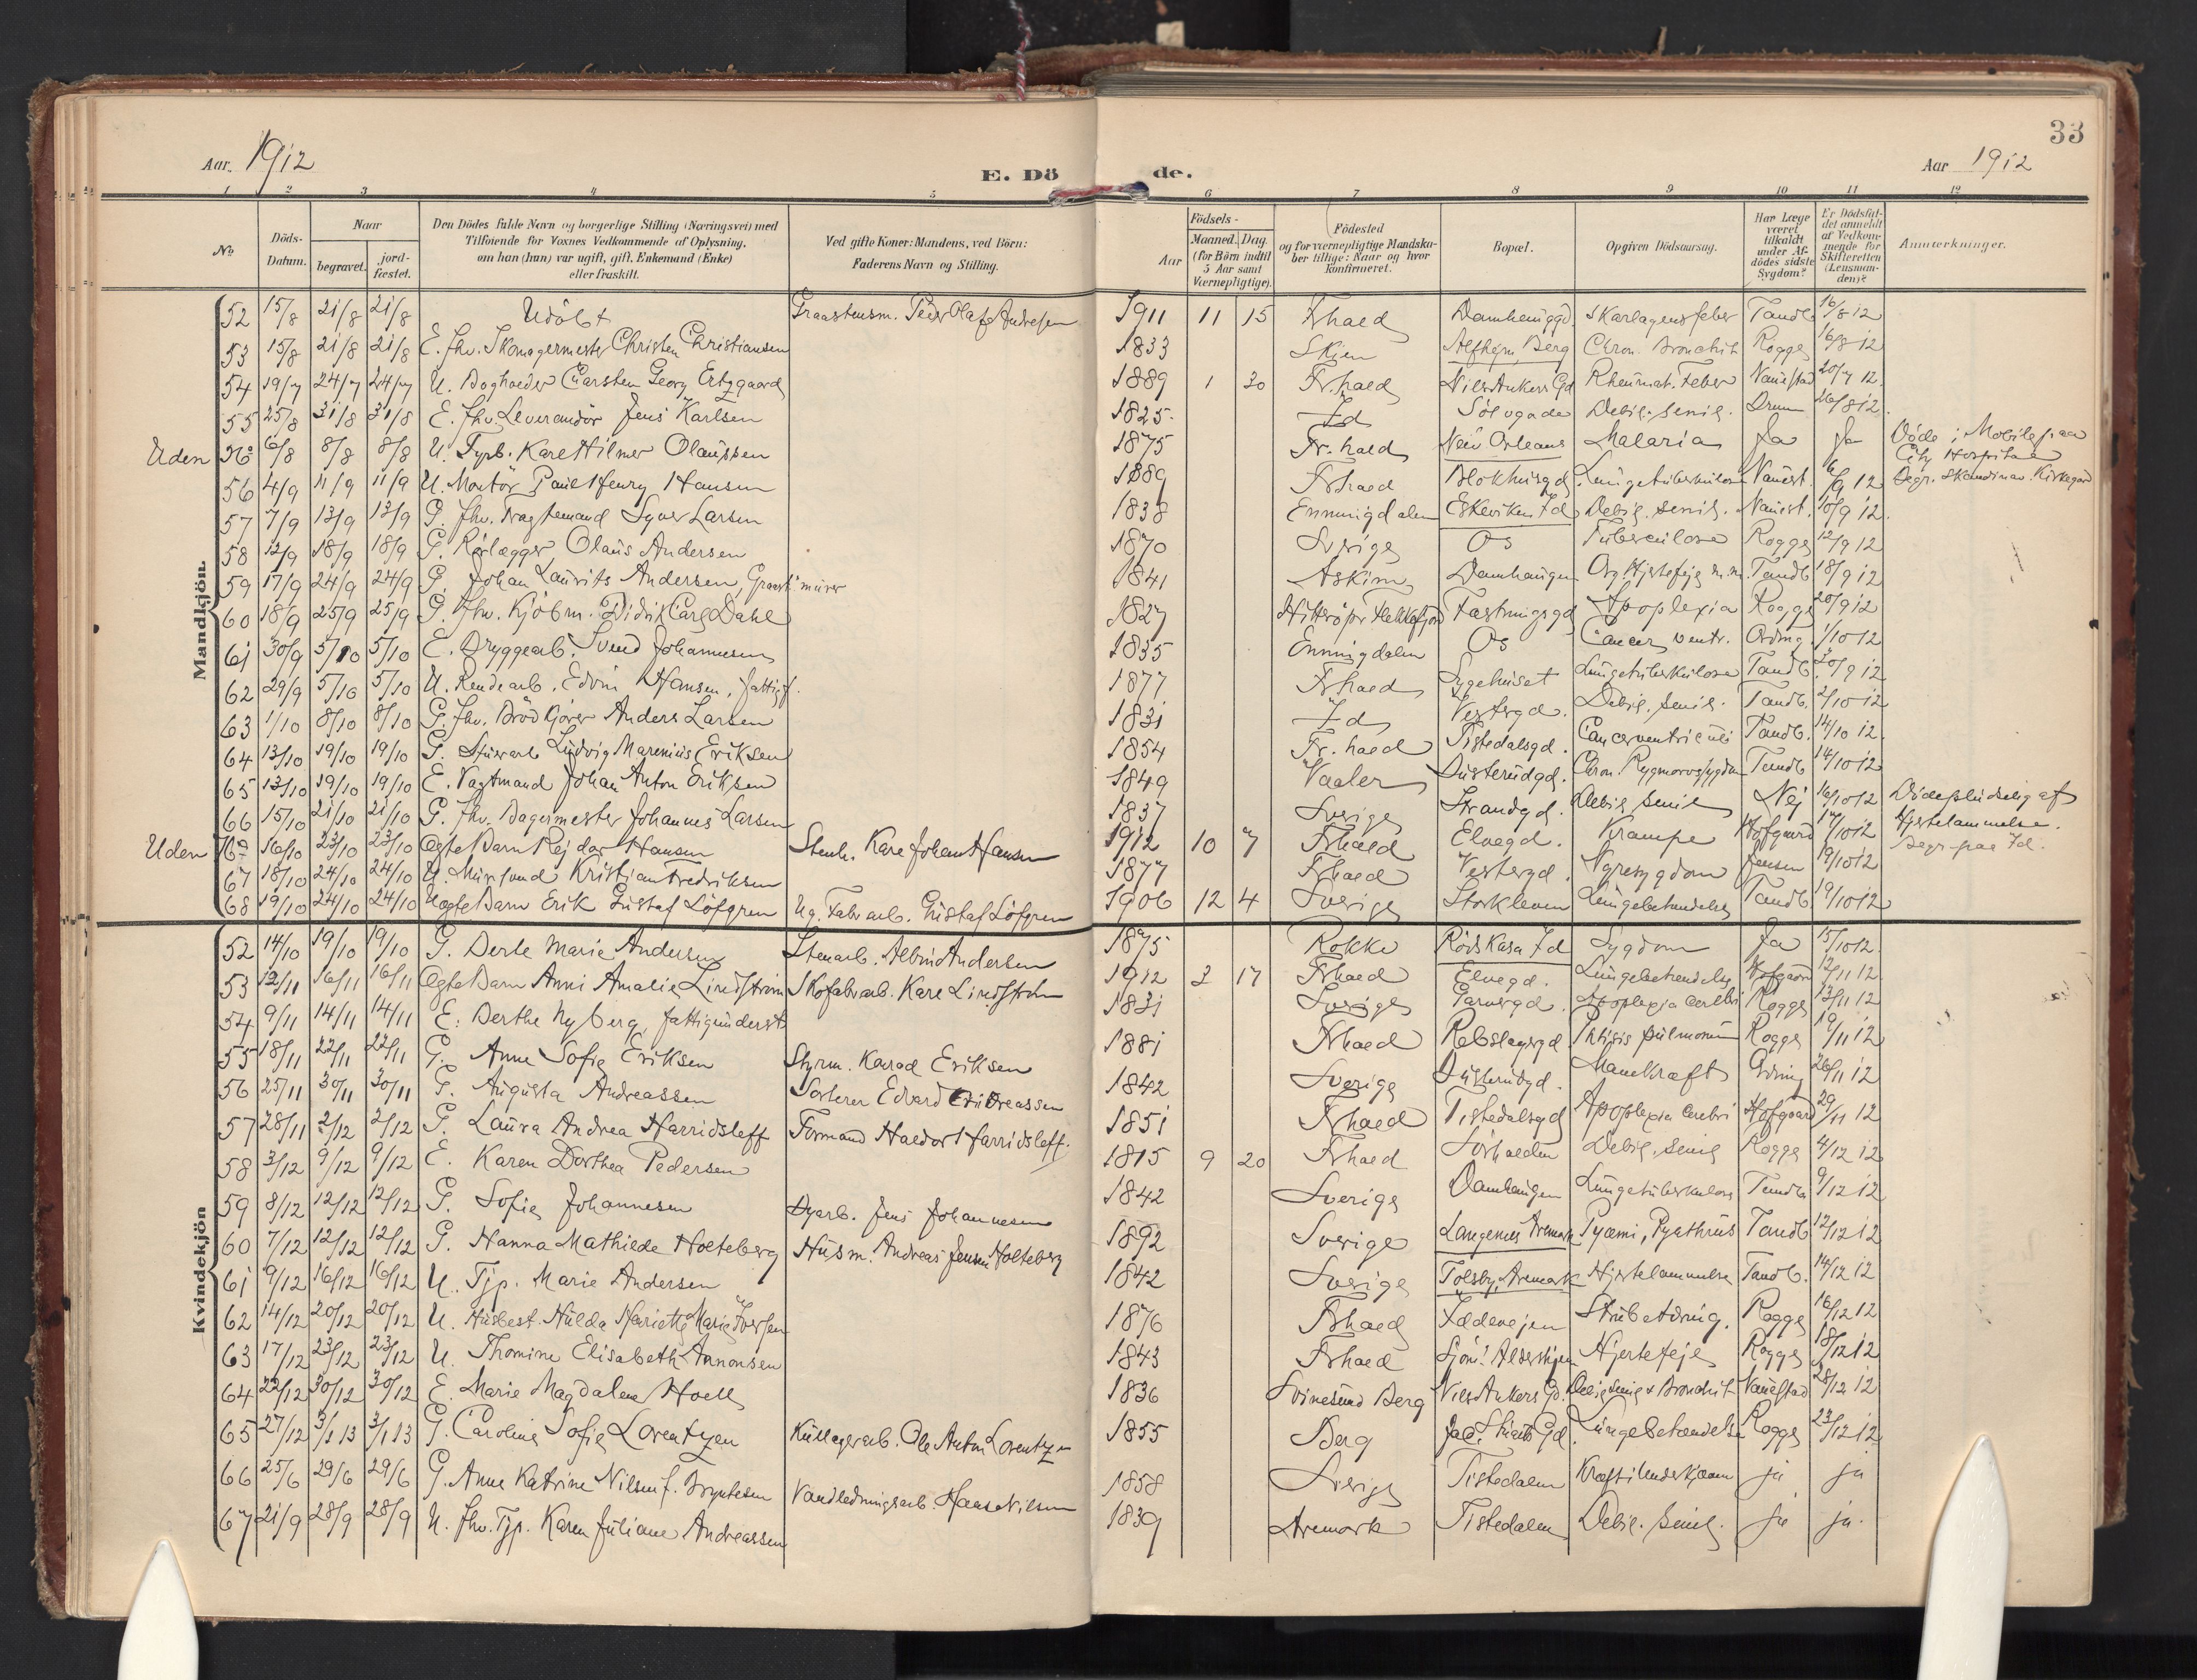 33
Aar 1912
E. Dö
de.
Aar 1912
1 2 3 4 5 6 7 8 9 10 11 12
No
Döds-Datum.
Naar
begravet. jord-fæstet.
Den Dödes fulde Navn og borgerlige Stilling (Næringsvei) med
Tilföiende for Voxnes Vedkommende af Oplysning,
om han (hun) var ugift, gift, Enkemand (Enke)
eller fraskilt.
Ved gifte Koner: Mandens, ved Börn:
Faderens Navn og Stilling.
Födsels-
Aar Maaned. Dag.
(for Börn indtil
5 Aar samt
Værnepligtige).
Födested
og for værnepligtige Mandska-
ber tillige: Naar og hvor
konfirmeret.
Bopæl.
Opgiven Dödsaarsag.
Har Læge
været
tilkaldt
under Af-
dödes sidste
Sygdom?
Er Dödsfal-
det anmeldt
af Vedkom-
mende for
Skifteretten
(Lensman-
den)?
Anmærkninger.
Mandkjön.
52 15/8 21/8 21/8 Udöbt Graastensm. Peder Olaf Andresen 1911 11 15 Frhald Damhauggd. Skarlagensfeber Tandb. 16/8 12
53 15/8 21/8 21/8 E. fhv. Skomagermester Christen Christiansen 1833 Skien Alfheim, Berg Chron. Bronchit Rogge 16/8 12
54 19/7 24/7 24/7 U. Boghoeder Carsten Georg Ertzgaard 1889 1 30 Fr.hald Nils Ankers Gd Rheumat. Feber Nauestad 20/7 12.
55 25/8 31/8 31/8 E. fhv. Leverandör Jens Karlsen 1825 Id Sölvgade Debil. senil. 26/8 12.
Uden No 6/8 8/8 8/8 U. Typb. Karl Hilmer Olaussen 1875 Fr.hald New Orleans Malaria Ja Ja Döde i Mobile paa
City Hospital
56 4/9 11/9 11/9 U. Montör Paul Henry Hansen 1889 Frhald Blokhusgd. Lungetuberkulose Nauest. 6/9 12 Begr. Skandinav. Kirkegaard
57 7/9 13/9 13/9 G. fhv. Fragtemand Syver Larsen 1838 Enningdalen Eskeviken Id Debil. senil. Nauest. 10/9 12.
58 12/9 18/9 18/9 G. Rörlægger Olaus Andersen 1870 Sverige Os Tuberculose Rogge 12/9 12
59 17/9 24/9 24/9 G. Johan Laurits Andersen, Graastmurer 1841 Askim Damhaugen Org. Hjertefeje m.m. Tandb 18/9 12
60 18/9 25/9 25/9 G. fhv. Kjöbm. Didrik Carl Dahl 1827 Hitterö pr Flekkefjord Fæstningsgd Apoplexia Rogge 20/9 12
61 30/9 5/10 5/10 E. Bryggearb. Svend Johannesen 1835 Enningdalen Os Cancer ventr. 1/10 12
62 29/9 5/10 5/10 U. Rendearb. Edvin Hansen, fattigf. 1877 Frhald Sygehuset Lungetuberkulose Tandb. 30/9 12
63 1/10 8/10 8/10 G. fhv. Brödkjörer Anders Larsen 1831 Id Vestergd. Debil. senil. Tandb. 2/10 12
64 13/10 19/10 19/10 G. Stuerarb Ludvig Marenius Eriksen 1854 Fr.hald Tistedalsgd. Cancer ventriculi Tandb. 14/10 12.
65 13/10 19/10 19/10 E. Vagtmand Johan Anton Eriksen 1849 Vaaler Busterudgd. Chron. Rygmarvssygdom Tandb 14/10 12
66 15/10 21/10 21/10 G. fhv. Bagermester Johannes Larsen 1837 Sverige Strandgd. Debil. senil Nej 16/10 12 Döde pludselig af
Hjertelammelse.
Uden No 16/10 23/10 23/10 Ægte Barn Rejdar Hansen Stenh. Karl Johan Hansen 1912 10 7 Frhald Elvegd. Krampe Hofgaard 17/10 12 Begr. paa Id.
67 18/10 24/10 24/10 U. Murer Kristian Fredriksen 1877 Frhald Vestergd. Nyresygdom Jensen 19/10 12
68 19/10 24/10 24/10 Uægte Barn Erik Gustaf Löfgren Ug. Fabrarb. Gustaf Löfgren 1906 12 4 Sverige Storkleven Lungebetændelse Tandb 19/10 12
Kvindekjön
52 14/10 19/10 19/10 G. Berte Marie Andersen Stenarb. Albin Andersen 1875 Rokke Röds Kasa Id Sygdom Ja 15/10 12.
53 12/11 16/11 16/11 Ægte Barn Anni Amalie Lindström Skofabrarb. Karl Lindström 1912 3 17 Frhald Elvegd. Lungebetændelse Hofgaard 12/11 12.
54 9/11 14/11 14/11 E. Berthe Nyberg, fattigunderst. 1831 Sverige Garvergd. Apoplexia cerebri Rogge 13/11 12
55 18/11 22/11 22/11 G. Anne Sofie Eriksen Styrm. Konrad Eriksen 1881 Frhald Rebslagergd Phtisis pulmonum Rogge 19/11 12
56 25/11 30/11 30/11 G. Augusta Andreassen Sorterer Edvard Andreassen 1842 Sverige Busterudgd. Mavekræft 26/11 12
57 28/11 2/12 2/12 G. Laura Andrea Harridsleff Formand Haldor Harridsleff. 1851 Frhald Tistedalsgd Apoplexia cerebri Hofgaard 29/11 12
58 3/12 9/12 9/12 E. Karen Dorthea Pedersen 1815 9 20 Frhald Sörhalden Debil. senil Rogge 4/12 12
59 8/12 12/12 12/12 G. Sofie Johannesen Byarb. Jens Johannesen 1842 Sverige Damhaugen Lungetuberkulose Tandb. 9/12 12
60 7/12 12/12 12/12 G. Hanna Mathilde Holteberg Husm. Andreas Jensen Holteberg 1892 Sverige Langenes Aremark Pyæmi, Pyathrus Tandb 12/12 12
61 9/12 16/12 16/12 U. Tjp. Marie Andersen 1842 Sverige Tolsby, Aremark Hjertelammelse Tandb. 14/12 12
62 14/12 20/12 20/12 U. Husbest. Hulda Hariette Marie Iversen 1876 Frhald Iddevejen Strubetæring. Rogge 16/12 12
63 17/12 23/12 23/12 U. Thomine Elisabeth Annonsen 1843 Frhald Sjöm! Aldershjem Hjertefeje Rogge 18/12 12
64 22/12 30/12 30/12 E. Marie Magdalene Hoell 1836 Svinesund Berg Nils Ankers Gd. Debil. senil & Bronchit Nauestad 28/12 12
65 27/12 3/1 13 3/1 13 G. Caroline Sofie Lorentzen Kullagerarb. Ole Anton Lorentzen 1855 Berg Jac. Gd. Lungebetændelse Rogge 23/12 12
66 25/6 29/6 29/6 G. Anne Katrine Nilsen f. Bryntesen Vandledningsarb. Hans Nilsen 1858 Sverige Tistedalen Kræft i Underkjæven ja ja
67 21/9 28/9 28/9 U. fhv. Tjp. Karen Juliane Andreassen 1839 Aremark Tistedalen Debil. senil. ja ja.